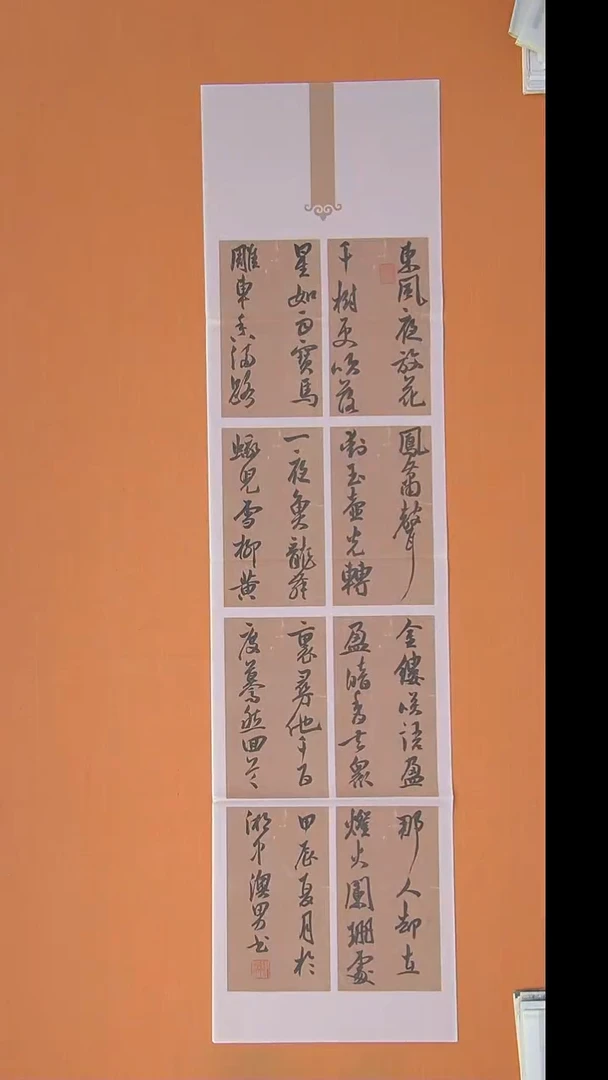 東風夜放花
千樹更吹落
星如雨寶馬
雕車香滿路
鳳簫聲
動玉壺光轉
一夜魚龍舞
蛾兒雪柳黄
金縷笑語盈
盈暗香去眾
裏尋他千百
度驀然回首
那人却在
燈火闌珊處
甲辰夏月於
湖中澳男书